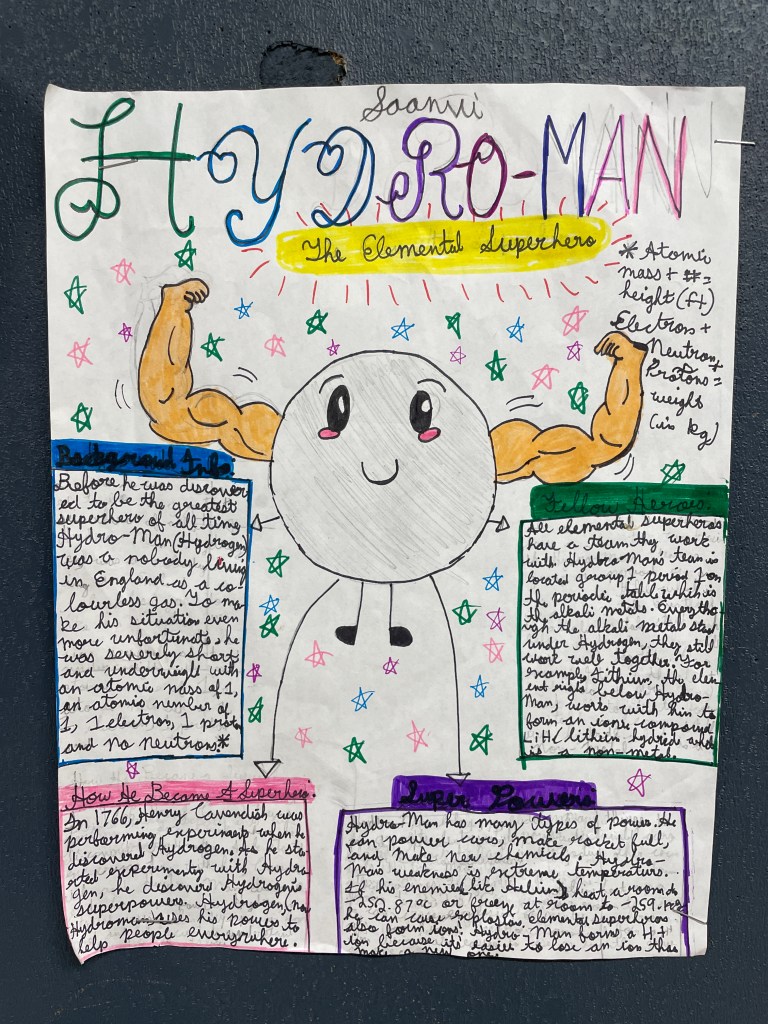 Saanvi
HYDRO-MAN
The Elemental Superhero
* Atomic
mass + # =
height (ft)
Electron +
Neutron +
Protons =
weight
(in kg)
Background Info.
Before he was discover
ed to be the greatest
superhero of all time,
Hydro-Man (Hydrogen)
was a nobody living
in England as a co
lourless gas. To ma
ke his situation even
more unfortunate, he
was severly short
and underweight with
an atomic mass of 1,
an atomic number of
1, 1 electron, 1 proton
and no neutrons.*
Fellow Heroes
All elemental superheros
have a team they work
with. Hydro-Man's team is
located group 1 period 1 on
the periodic table which is
the alkali metals. Even tho
ugh the alkali metal start
under Hydrogen, they still
work well together. For
example, Lithium, the elem
ent right below Hydro-
Man, works with him to
form an ionic compound
LiH (lithium hydride which
is a non-metal.
How He Became A Superhero.
In 1766, Henry Cavendish was
performing experiments when he
discovered Hydrogen. As he sta
rted experimenting with Hydro
gen, he discovers Hydrogen's
superpowers. Hydrogen, (now
Hydroman uses his powers to
help people everywhere.
Super Powers
Hydro-Man has many types of power. He
can power cars, make rocket fuel,
and make new chemicals. Hydro-
Man's weakness is extreme temperature.
If his enemies like Helium, heat a room to
-252.87°c or freeze at room to -259.14°c
he can cause explosion. elemental superheros
also form ions. Hydro-Man forms a H+
ion because it's easier to lose an ion than
make a new one.